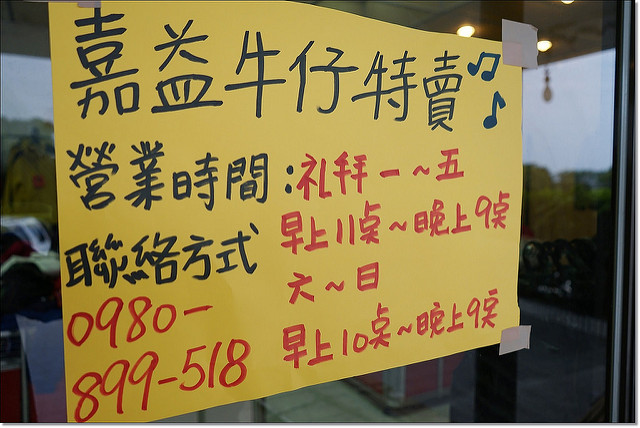 嘉益牛仔特賣
營業時間:礼拜一~五
早上11桌~晚上9桌
六~日
早上10桌~晚上9桌
聯絡方式
0980-
899-518